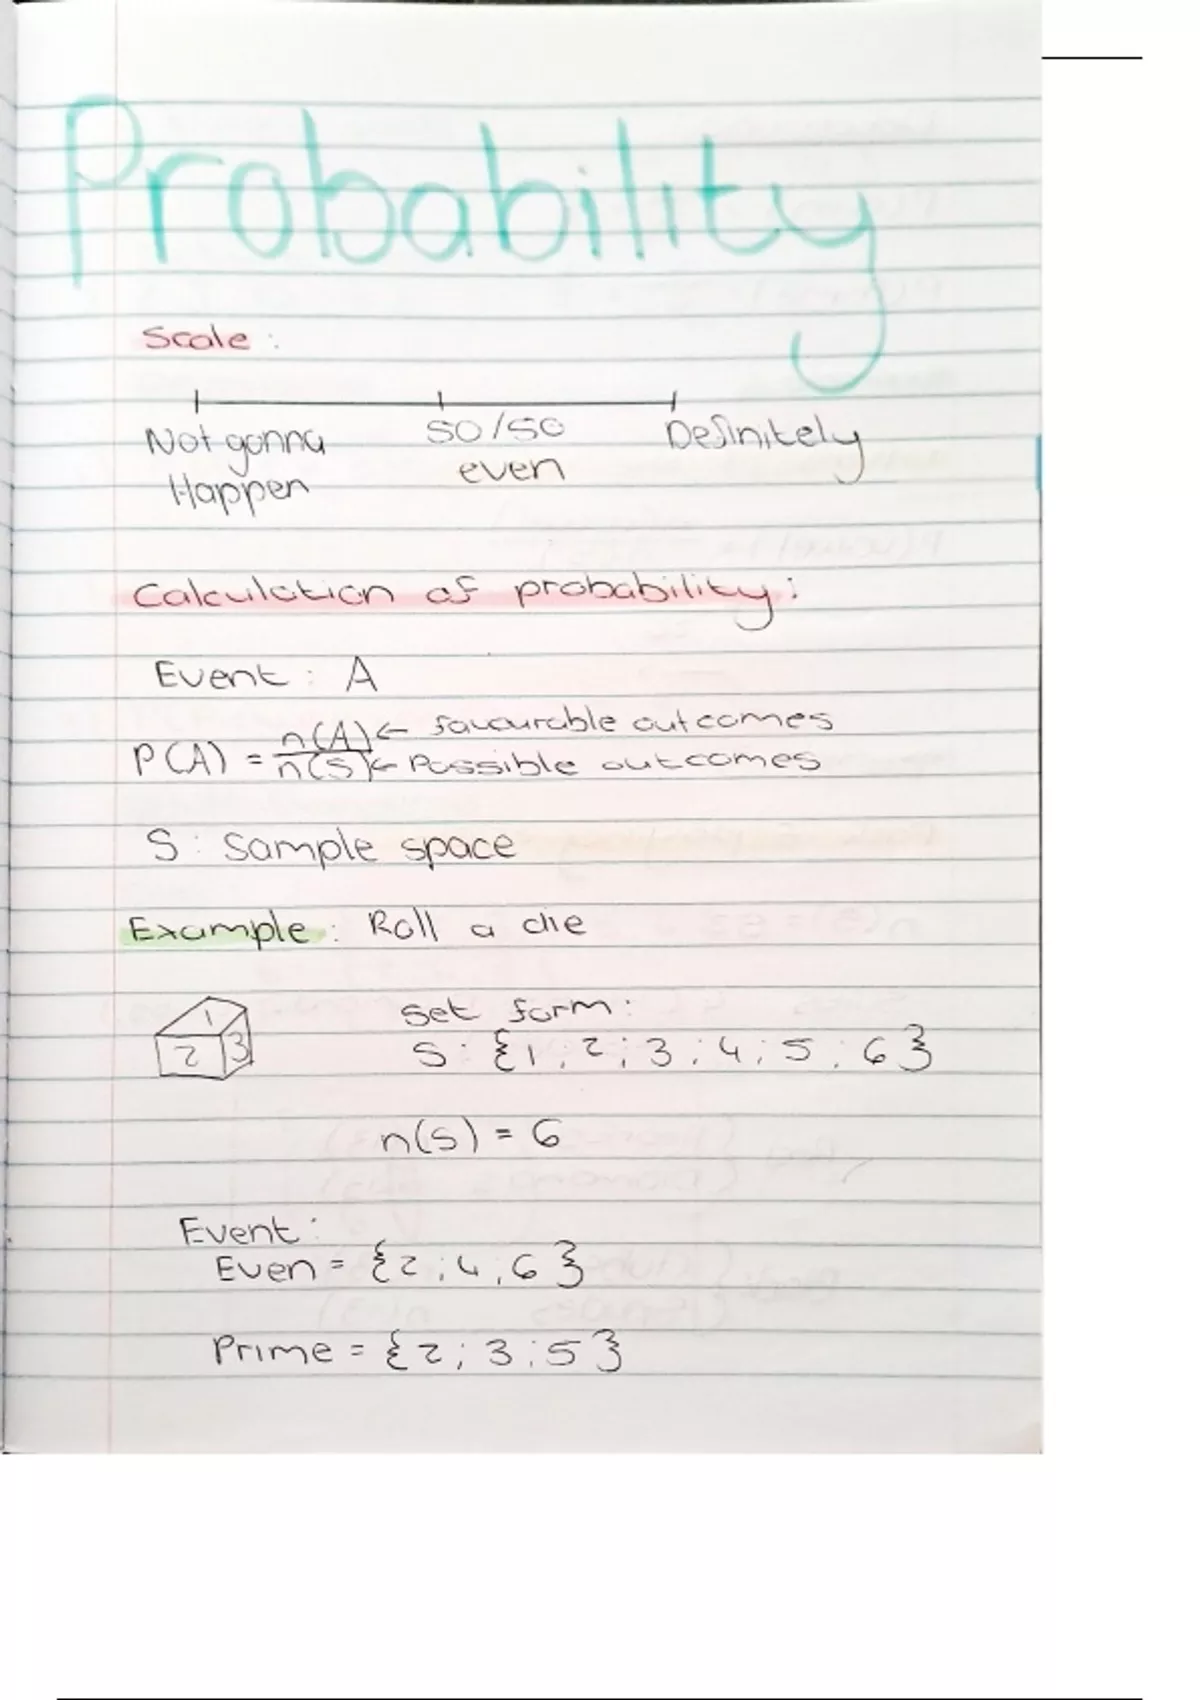 Probability
Scale :
Not gonna Happen
50/50 even
Definitely
Calculation of probability :
Event : A
P(A) = n(A) ← favourable outcomes
n(S) ← Possible outcomes
S : Sample space
Example : Roll a die
1
2 3
Set form :
S : {1 ; 2 ; 3 ; 4 ; 5 ; 6}
n(S) = 6
Event :
Even = {2 ; 4 ; 6}
Prime = {2 ; 3 ; 5}